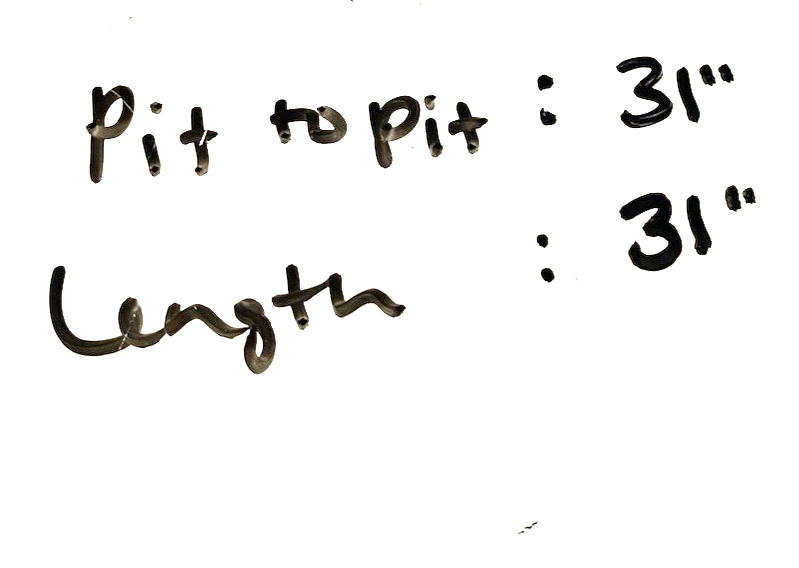 Pit to pit : 31"
Length : 31"